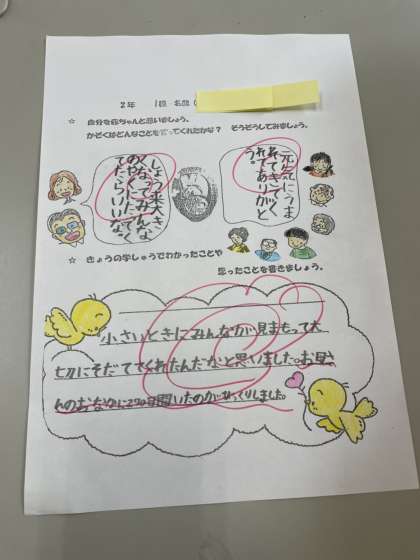 2年 1組 名前(
☆ 自分を赤ちゃんと思いましょう。
かぞくはどんなことを言ってくれたかな? そうぞうしてみましょう。
元気にうま
れてきてくれ
てありがと
う。
しょう来大きく
なってみんな
のやくにたってくれ
たらいいな。
☆ きょうの学しゅうでわかったことや
思ったことを書きましょう。
小さいときにみんなが見まもって大
切にそだててくれたんだなと思いました。お母さ
んのおなかに290日間いたのがびっくりしました。